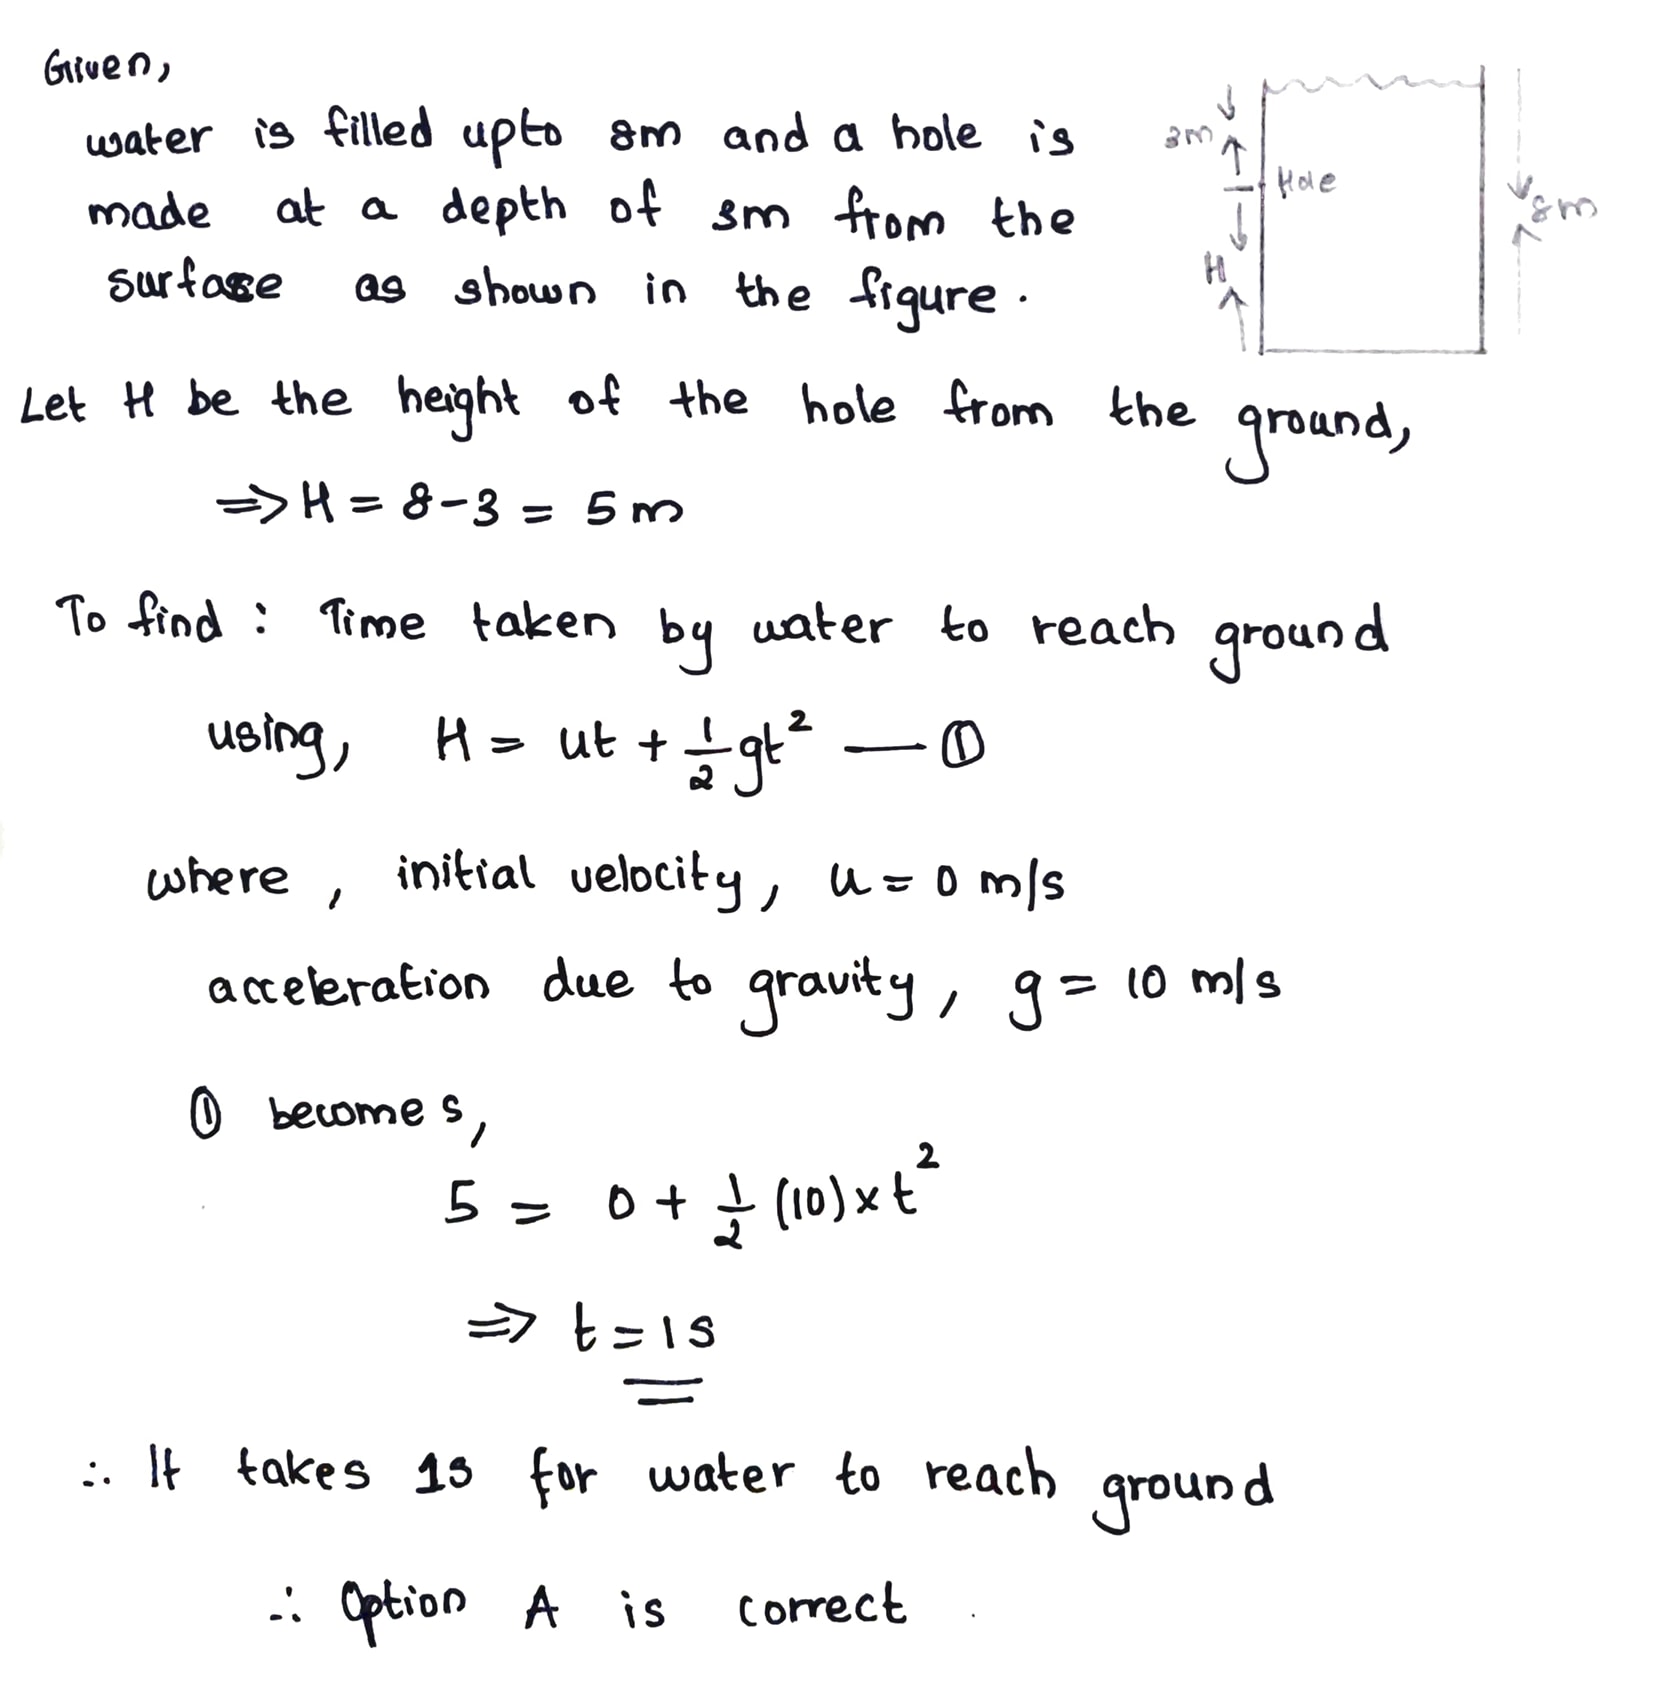 Given,
water is filled upto 8m and a hole is
made at a depth of 3m from the
surface as shown in the figure.
3m
Hole
8m
H
Let H be the height of the hole from the ground,
⇒ H = 8-3 = 5 m
To find : Time taken by water to reach ground
using, H = ut + 1/2 gt² — ①
where , initial velocity, u = 0 m/s
acceleration due to gravity, g = 10 m/s
① becomes,
5 = 0 + 1/2 (10) x t²
⇒ t = 1s
∴ It takes 1s for water to reach ground
∴ Option A is correct .